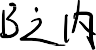 B之内